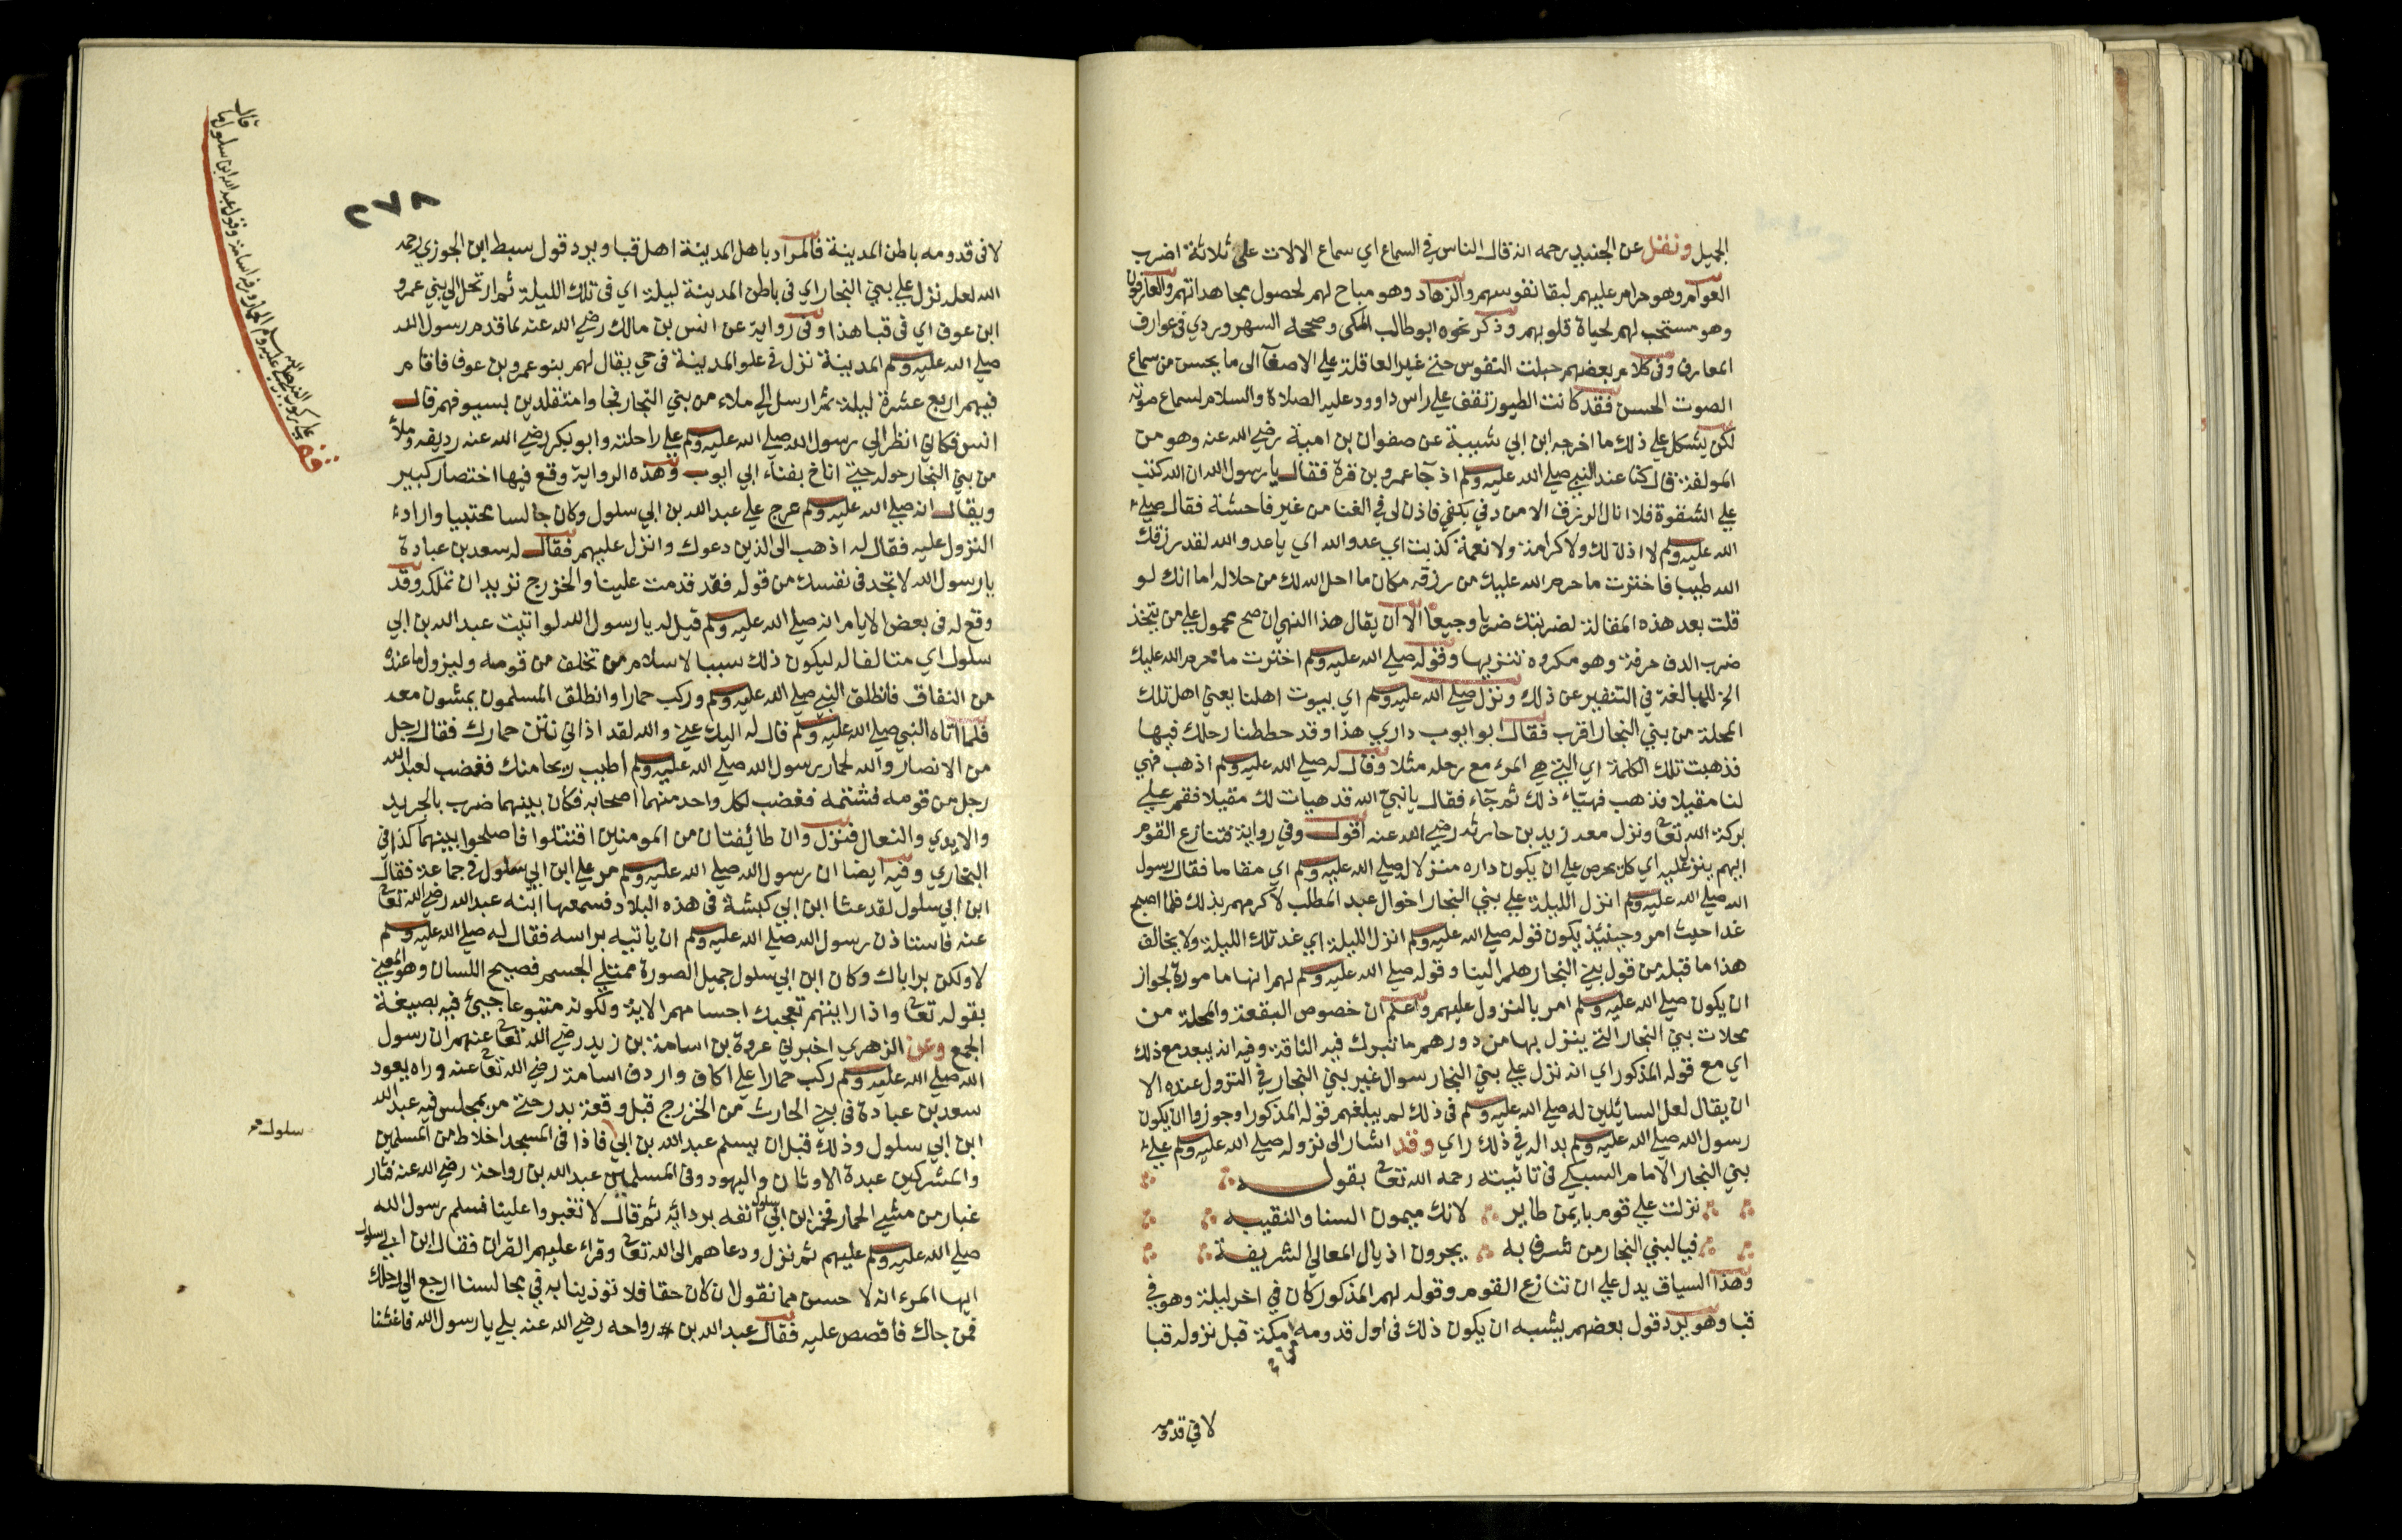 الجميل ونقل عن الجنيد رحمه انه قال الناس في السماع اي سماع الالات على ثلاثة اضرب
العوام وهو حرام عليهم لبقا نفوسهم والزهاد وهو مباح لهم لحصول مجاهداتهم والعارفون
وهو مستحب لهم لحياة قلوبهم وذكر نحوه ابو طالب المكى وصححه السهروردي في عوارف
المعارف وفى كلام بعضهم جبلت النفوس حتى غير العاقلة على الاصغآ الى ما يحسن من سماع
الصوت الحسن فقد كانت الطيور تقف على راس داوود عليه الصلاة والسلام لسماع صوته
لكن يشكل على ذلك ما اخرجه ابن ابي شيبة عن صفوان بن امية رضي الله عنه وهو من
المولفة قال كنا عند النبي صلى الله عليه وسلم اذ جآ عمرو بن قرة فقال يا رسول الله ان الله كتب
على الشقوة فلا انال الرزق الا من دفي بكفي فاذن لى في الغنا من غير فاحشة فقال صلى
الله عليه وسلم لا اذن لك ولا كرامة ولا نعمة كذبت اي عدو الله اي يا عدو الله لقد رزقك
الله طيبا فاخترت ما حرم الله عليك من رزقه مكان ما احل الله لك من حلاله اما انك لو
قلت بعد هذه المقالة لضربتك ضربا وجيعا الا ان يقال هذا النهي ان صح محمول على من يتخذ
ضرب الدف حرفة وهو مكروه تنزيها وقوله صلى الله عليه وسلم اخترت ما حرم الله عليك
الخ للمبالغة في التنفير عن ذلك ونزل صلى الله عليه وسلم اي بيوت اهلنا يعني اهل تلك
المحلة من بني النجار اقرب فقال ابو ايوب داري هذا وقد حططنا رحلك فيها
فذهبت تلك الكلمة اي التي هي المرء مع رحله مثلا وقال له صلى الله عليه وسلم اذهب فهي
لنا مقيلا فذهب فهيّاء ذلك ثم جآء فقال يا نبي الله قد هيات لك مقيلا فقم على
بركة الله تعا ونزل معه زيد بن حارثه رضي الله عنه اقول وفي رواية فتنازع القوم
ايهم ينزل عليه اي كل يحرص على ان يكون داره منزلا له صلى الله عليه وسلم اي مقاما فقال رسول
الله صلى الله عليه وسلم انزل الليلة على بني النجار اخوال عبد المطلب لاكرمهم بذلك فلما اصبح
غدا حيث امر وحينئذ يكون قوله صلى الله عليه وسلم انزل الليلة اي غد تلك الليلة ولا يخالف
هذا ما قبله من قول بني النجار هلم الينا وقوله صلى الله عليه وسلم لهم انها مامورة لجواز
ان يكون صلى الله عليه وسلم امر بالنزول عليهم واعلم ان خصوص البقعة والمحلة من
محلات بني النجار التي ينزل بها من دورهم ما تبرك فيه الناقة وفيه انه يبعد مع ذلك
اي مع قوله المذكور اي انه نزل على بني النجار سوال غير بني النجار في النزول عنده الا
ان يقال لعل السائلين له صلى الله عليه وسلم فى ذلك لم يبلغهم قوله المذكور او جوزوا ان يكون
رسول الله صلى الله عليه وسلم بدا له في ذلك راي وقد اشار الى نزوله صلى الله عليه وسلم على
بني النجار الامام السبكي فى تائيته رحمه الله تعا بقوله
نزلت على قوم بايمن طاير لانك ميمون السنا والنقيبه
فيا لبني النجار من شرف به يجرون اذيال المعالي الشريفة
وهذا السياق يدل على ان تنازع القوم وقوله لهم المذكور كان في اخر ليلة وهو في
قبا وهو يرد قول بعضهم يشبه ان يكون ذلك فى اول قدومه من مكة قبل نزوله قبا
لا في قدومه
٢٧٨
لا فى قدومه باطن المدينة فالمراد باهل المدينة اهل قبا ويرد قول سبط ابن الجوزي رحمه
الله لعله نزل على بني النجار اي فى باطن المدينة ليلة اي فى تلك الليلة ثم ارتحل الى بني عمرو
ابن عوف اي فى قبا هذا وفى رواية عن انس بن مالك رضي الله عنه لما قدم رسول الله
صلى الله عليه وسلم المدينة نزل في علو المدينة فى حي يقال لهم بنو عمرو بن عوف فاقام
فيهم اربع عشرة ليلة ثم ارسل الى ملاء من بني النجار فجاوا متقلدين بسيوفهم قال
انس فكاني انظر الى رسول الله صلى الله عليه وسلم على راحلته وابو بكر رضي الله عنه رديفه وملأ
من بني النجار حوله حتى اناخ بفناء ابي ايوب وهذه الرواية وقع فيها اختصار كبير
ويقال انه صلى الله عليه وسلم عرج على عبد الله بن ابي سلول وكان جالسا محتبيا واراد
النزول عليه فقال له اذهب الى الذين دعوك وانزل عليهم فقال له سعد بن عبادة
يا رسول الله لا تجد فى نفسك من قوله فقد قدمت علينا والخزرج تريد ان تملكه وقد
وقع له فى بعض الايام انه صلى الله عليه وسلم قيل له يا رسول الله لو اتيت عبد الله بن ابي
سلول اي متالفا له ليكون ذلك سببا لاسلام من تخلف من قومه وليزول ما عنده
من النفاق فانطلق النبي صلى الله عليه وسلم وركب حمارا وانطلق المسلمون يمشون معه
فلما اتاه النبي صلى الله عليه وسلم قال له اليك عني والله لقد اذاني نتن حمارك فقال رجل
من الانصار والله لحمار رسول الله صلى الله عليه وسلم اطيب ريحا منك فغضب لعبد الله
رجل من قومه فشتمه فغضب لكل واحد منهما اصحابه فكان بينهما ضرب بالجريد
والايدي والنعال فنزل وان طائفتان من المومنين اقتتلوا فاصلحوا بينهما كذا في
البخاري وفيه ايضا ان رسول الله صلى الله عليه وسلم مر على ابن ابي سلول في جماعة فقال
ابن ابي سلول لقد عثا ابن ابي كبشة فى هذه البلاد فسمعها ابنه عبد الله رضي الله تعا
عنه فاستاذن رسول الله صلى الله عليه وسلم ان ياتيه براسه فقال له صلى الله عليه وسلم
لا ولكن بر اباك وكان ابن ابي سلول جميل الصورة ممتلي الجسم فصيح اللسان وهو المعني
بقوله تعا واذا رايتهم تعجبك اجسامهم الاية ولكونه متبوعا جيئ فيه بصيغة
الجمع وعن الزهري اخبرني عروة بن اسامة بن زيد رضي الله تعا عنهم ان رسول
الله صلى الله عليه وسلم ركب حمارا على اكاف واردف اسامة رضي الله تعا عنه وراه يعود
سعد بن عبادة فى بني الحارث من الخزرج قبل وقعة بدر حتى مر بمجلس فيه عبد الله
ابن ابي سلول وذلك قبل ان يسلم عبد الله بن ابي فاذا فى المسجد اخلاط من المسلمين
والمشركين عبدة الاوثان واليهود وفى المسلمين عبد الله بن رواحة رضي الله عنه فثار
غبار من مشي الحمار فخمر ابن ابي سلول انفه بردائه ثم قال لا تغبروا علينا فسلم رسول الله
صلى الله عليه وسلم عليهم ثم نزل ودعاهم الى الله تعا وقراء عليهم القران فقال ابن ابي سلول
ايها المرء انه لا حسن مما تقول ان كان حقا فلا توذينا به في مجالسنا ارجع الى رحلك
فمن جاك فاقصص عليه فقال عبد الله بن رواحه رضي الله عنه بلى يا رسول الله فاغشنا
سلول صح